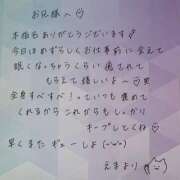 お兄様へ♡
本指名ありがとうございます♪
今日はめずらしくお仕事前に会えて
眠くなっちゃうくらい癒されて
もらえて嬉しいよ〜♡笑
全身すべすべ！っていつも褒めて
くれるからこれからもしっかり
キープしてくね♡
早くまたギューしよ(´ω`)
えまより